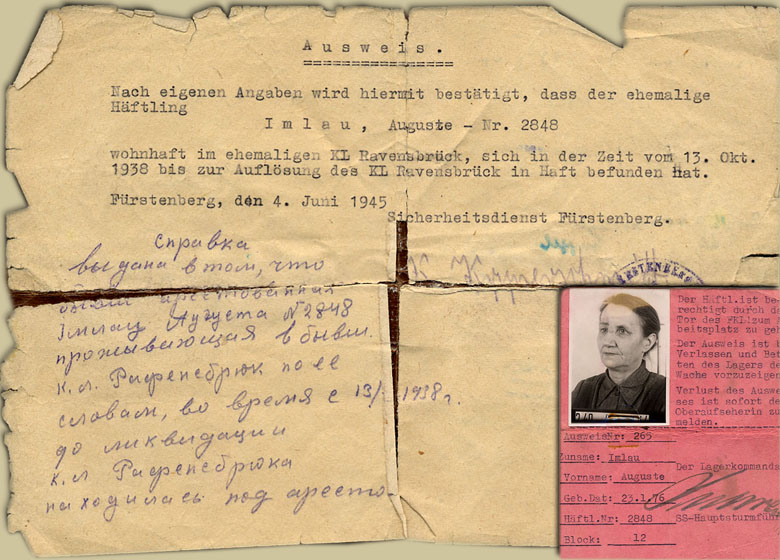 Ausweis.
Nach eigenen Angaben wird hiermit bestätigt, dass der ehemalige
Häftling
Imlau, Auguste - Nr. 2848
wohnhaft im ehemaligen KL Ravensbrück, sich in der Zeit vom 13. Okt.
1938 bis zur Auflösung des KL Ravensbrück in Haft befunden hat.
Fürstenberg, den 4. Juni 1945
Sicherheitsdienst Fürstenberg.
Справка
выдана в том, что
бывш арестованная
Имлау Аугуста N 2848
проживающая в бывш.
к.л. Рафенсбрюк по ее
словам, во время с 13/ 1938 г.
до ликвидации
к.л Рафенсбрюка
находилась под аресто
Der Häftl.ist be
rechtigt durch d
Tor des FKL zum
beitsplatz zu ge
Der Ausweis ist b
Verlassen und Bet
ten des Lagers de
Wache vorzuzeigen
Verlust des Auswe
ses ist sofort de
Oberaufseherin z
melden.
AusweisNr: 265
Zuname: Imlau
Vorname: Auguste
Geb.Dat: 23.1.76
Häftl.Nr: 2848
Block: 12
Der Lagerkommanda
SS-Hauptsturmführ